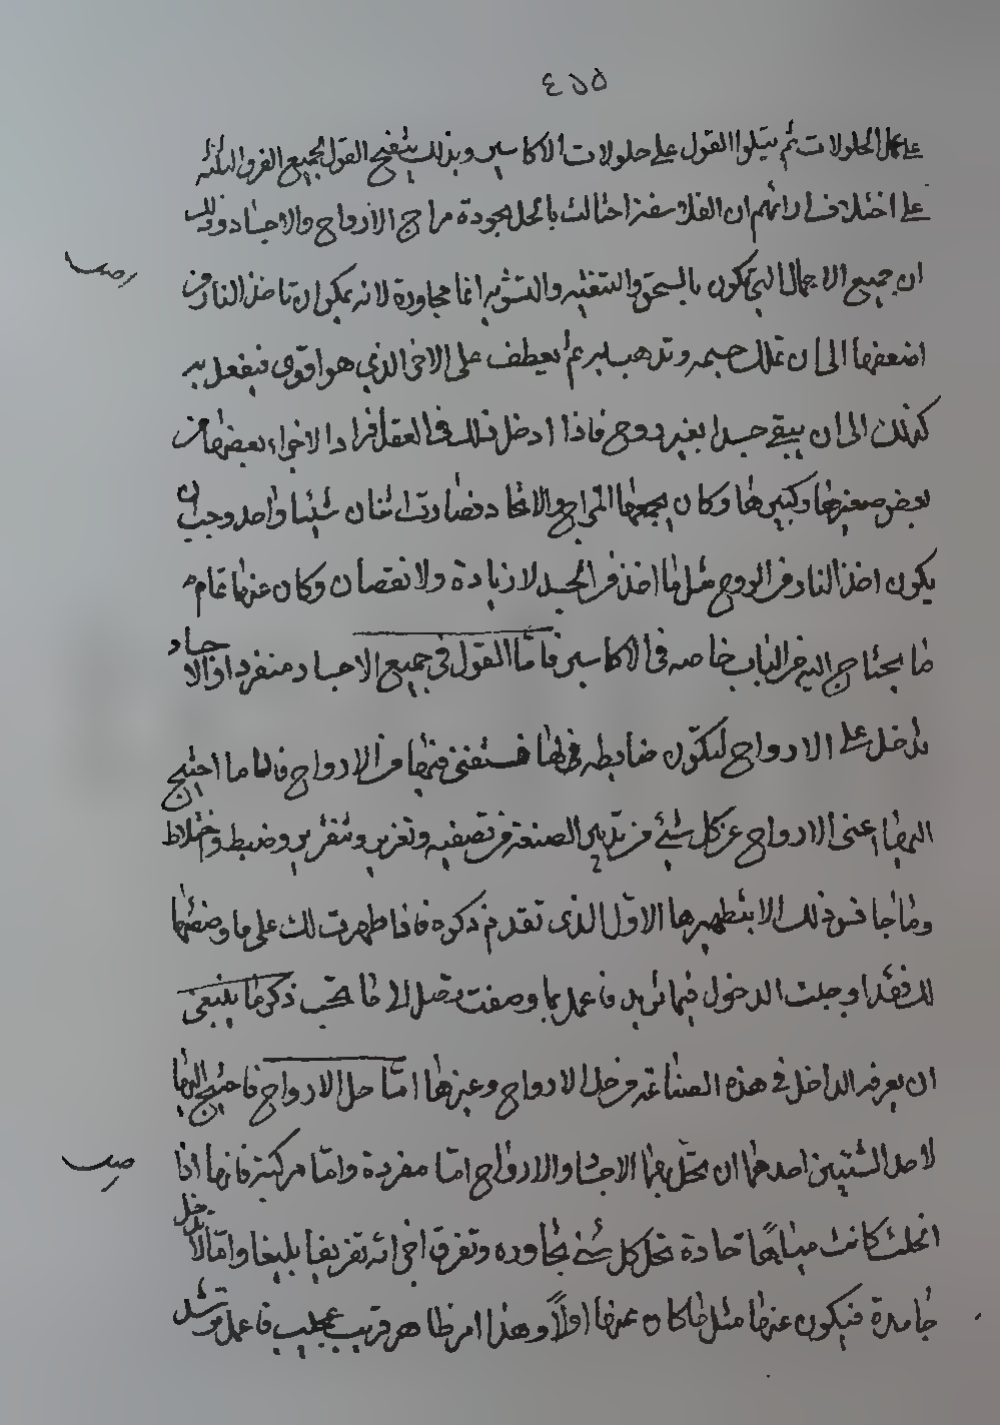 ٤٥٥
على عمل الحلولات ثم يتلوا القول على حلولات الاكاسير وبذلك يتضح القول لجميع الفرق الثلثه
على اختلاف ارائهم ان الفلاسفة احتالت بالحل لجودة مزاج الارواح والاجساد وذلك
ان جميع الاعمال التي تكون بالسحق والتسقيه والتشويه انما مجاورة لانه يمكن ان تاخذ النار من
اضعفها الى ان تملك جسمه وتذهب به ثم يعطف على الاخر الذي هو اقوى فيفعل به
كذلك الى ان يبقى جسدا بغير روح فاذا ادخل ذلك في العقل افراد الاجزاء بعضها من
بعض صغيرها وكبيرها وكان يجمعها المزاج والاتحاد فصارت اثنان شيئا واحد وجب ان
يكون اخذ النار من الروح مثل ما اخذ من الجسد لا زيادة ولا نقصان وكان عنها تمام
ما يحتاج اليه من الباب خاصه في الاكاسير فاما القول في جميع الاجساد منفرد اذ الاجساد
تدخل على الارواح لتكون ضابطه لها فمنها من الارواح فاما ما احتيج
اليها اعني الارواح عن كل شئ من تدبير الصنعة من تصفيه وتغرير وتقرير وضبط واختلاط
وما جانس ذلك الا بتطهيرها الاول الذى تقدم ذكره فاذا طهرت لك على ما وصفتها
لك فقد اوجبت الدخول فيما تريد فاعمل بما وصفت وصل الى ما تحب ذكر ما ينبغى
ان يعرفه الداخل في هذه الصناعة من حل الارواح وغيرها اما حل الارواح فاحتيج اليها
لاحد الشيئين احدهما ان تحل بها الاجساد والارواح اما مفردة واما مركبة فانها اذا
انحلت كانت مياها حادة تحل كل شئ تجاوره وتفرق اجزائه تفريقا بليغا واما لا تدخل
جامدة فيكون عنها مثل ما كان عنها اولا وهذا امر ظاهر قريب عجيب فاعمل به ترشد